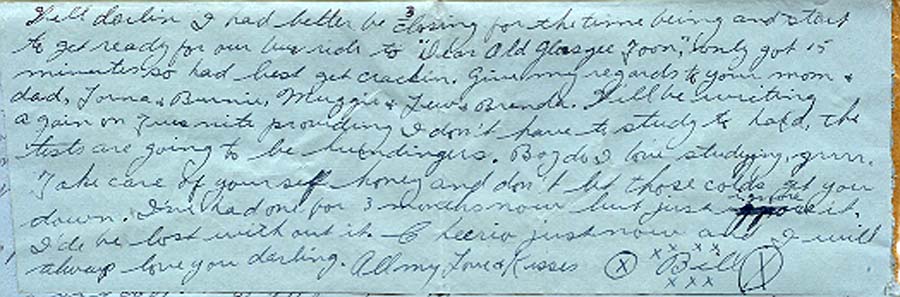 Well darlin I had better be closing for the time being and start
to get ready for our bus ride to "Dear Old Glasgee Toon," only got 15
minutes so had best get crackin. Give my regards to your mom &
dad, Lorna & Burnie, Muggie & Lews Brenda. Will be writing
again on Tues nite providing I don't have to study to hard, the
tests are going to be humdingers. Boy do I love studying, grrrr.
Take care of yourself honey and don't let those colds get you
down. I've had one for 3 months now but just ignore it.
I'de be lost without it. Cheerio just now and I will
always love you darling. All my Love & Kisses Bill